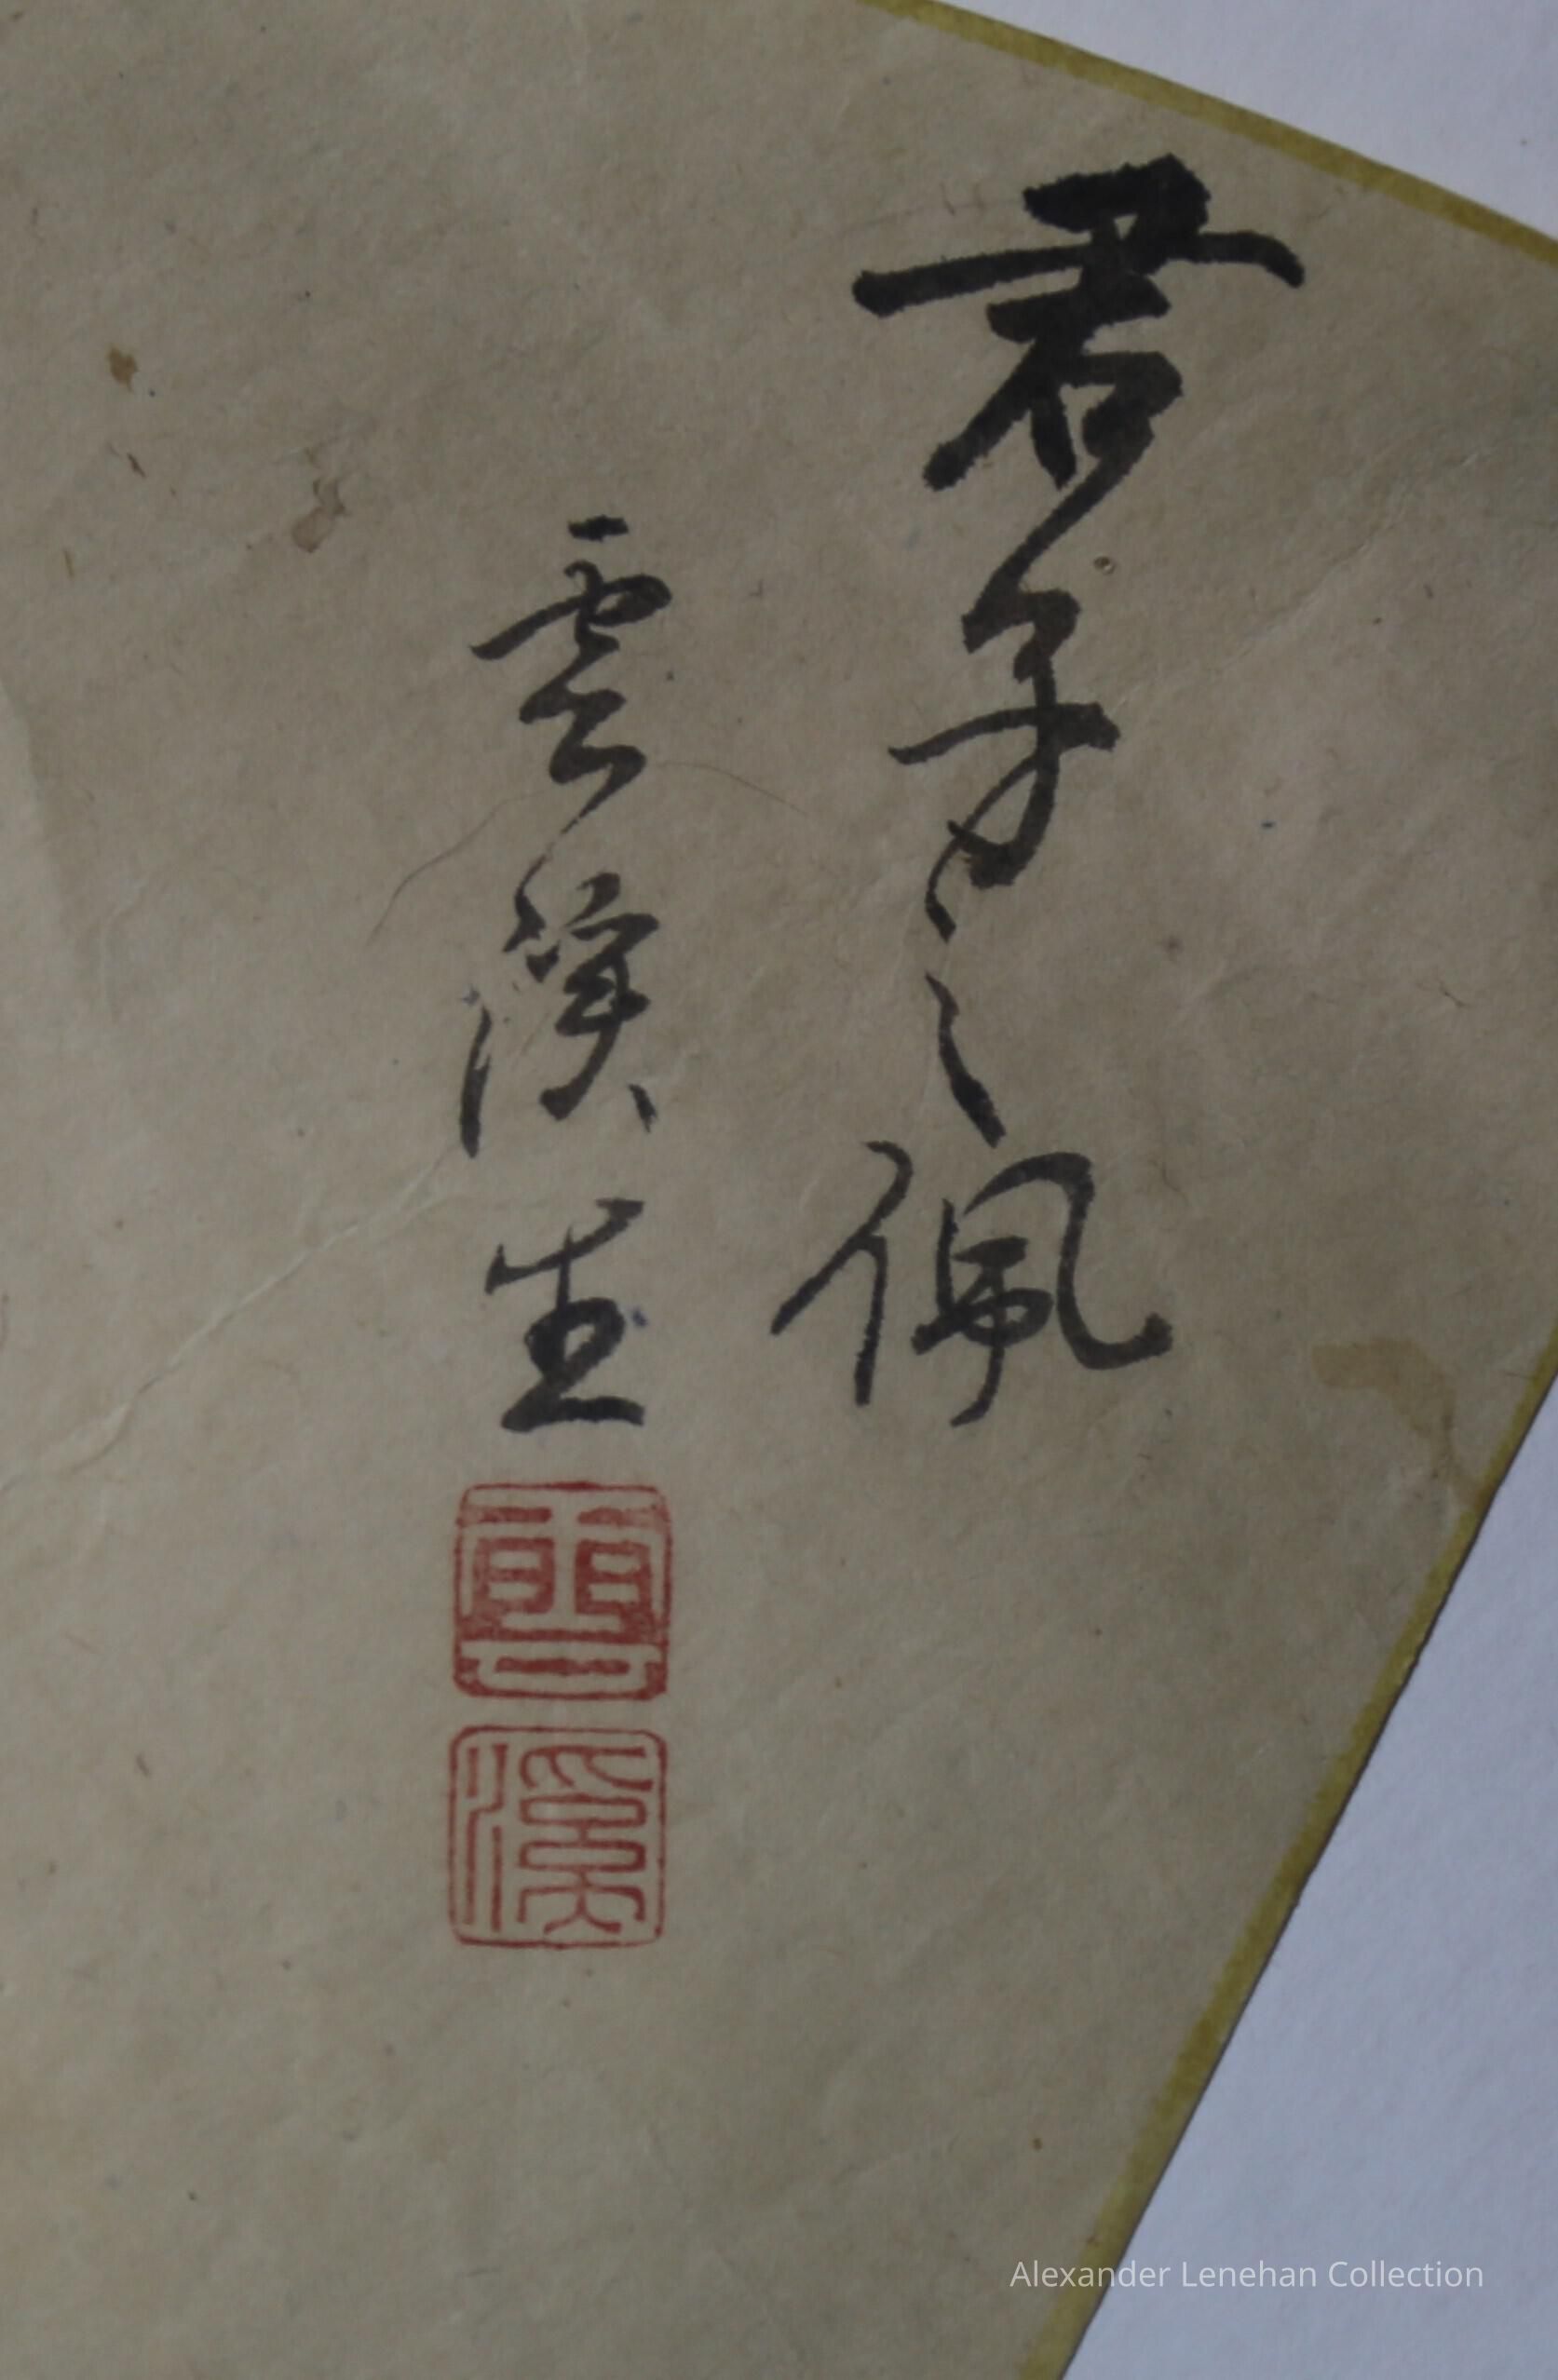 君子之佩
雲溪生
雲
溪
Alexander Lenehan Collection